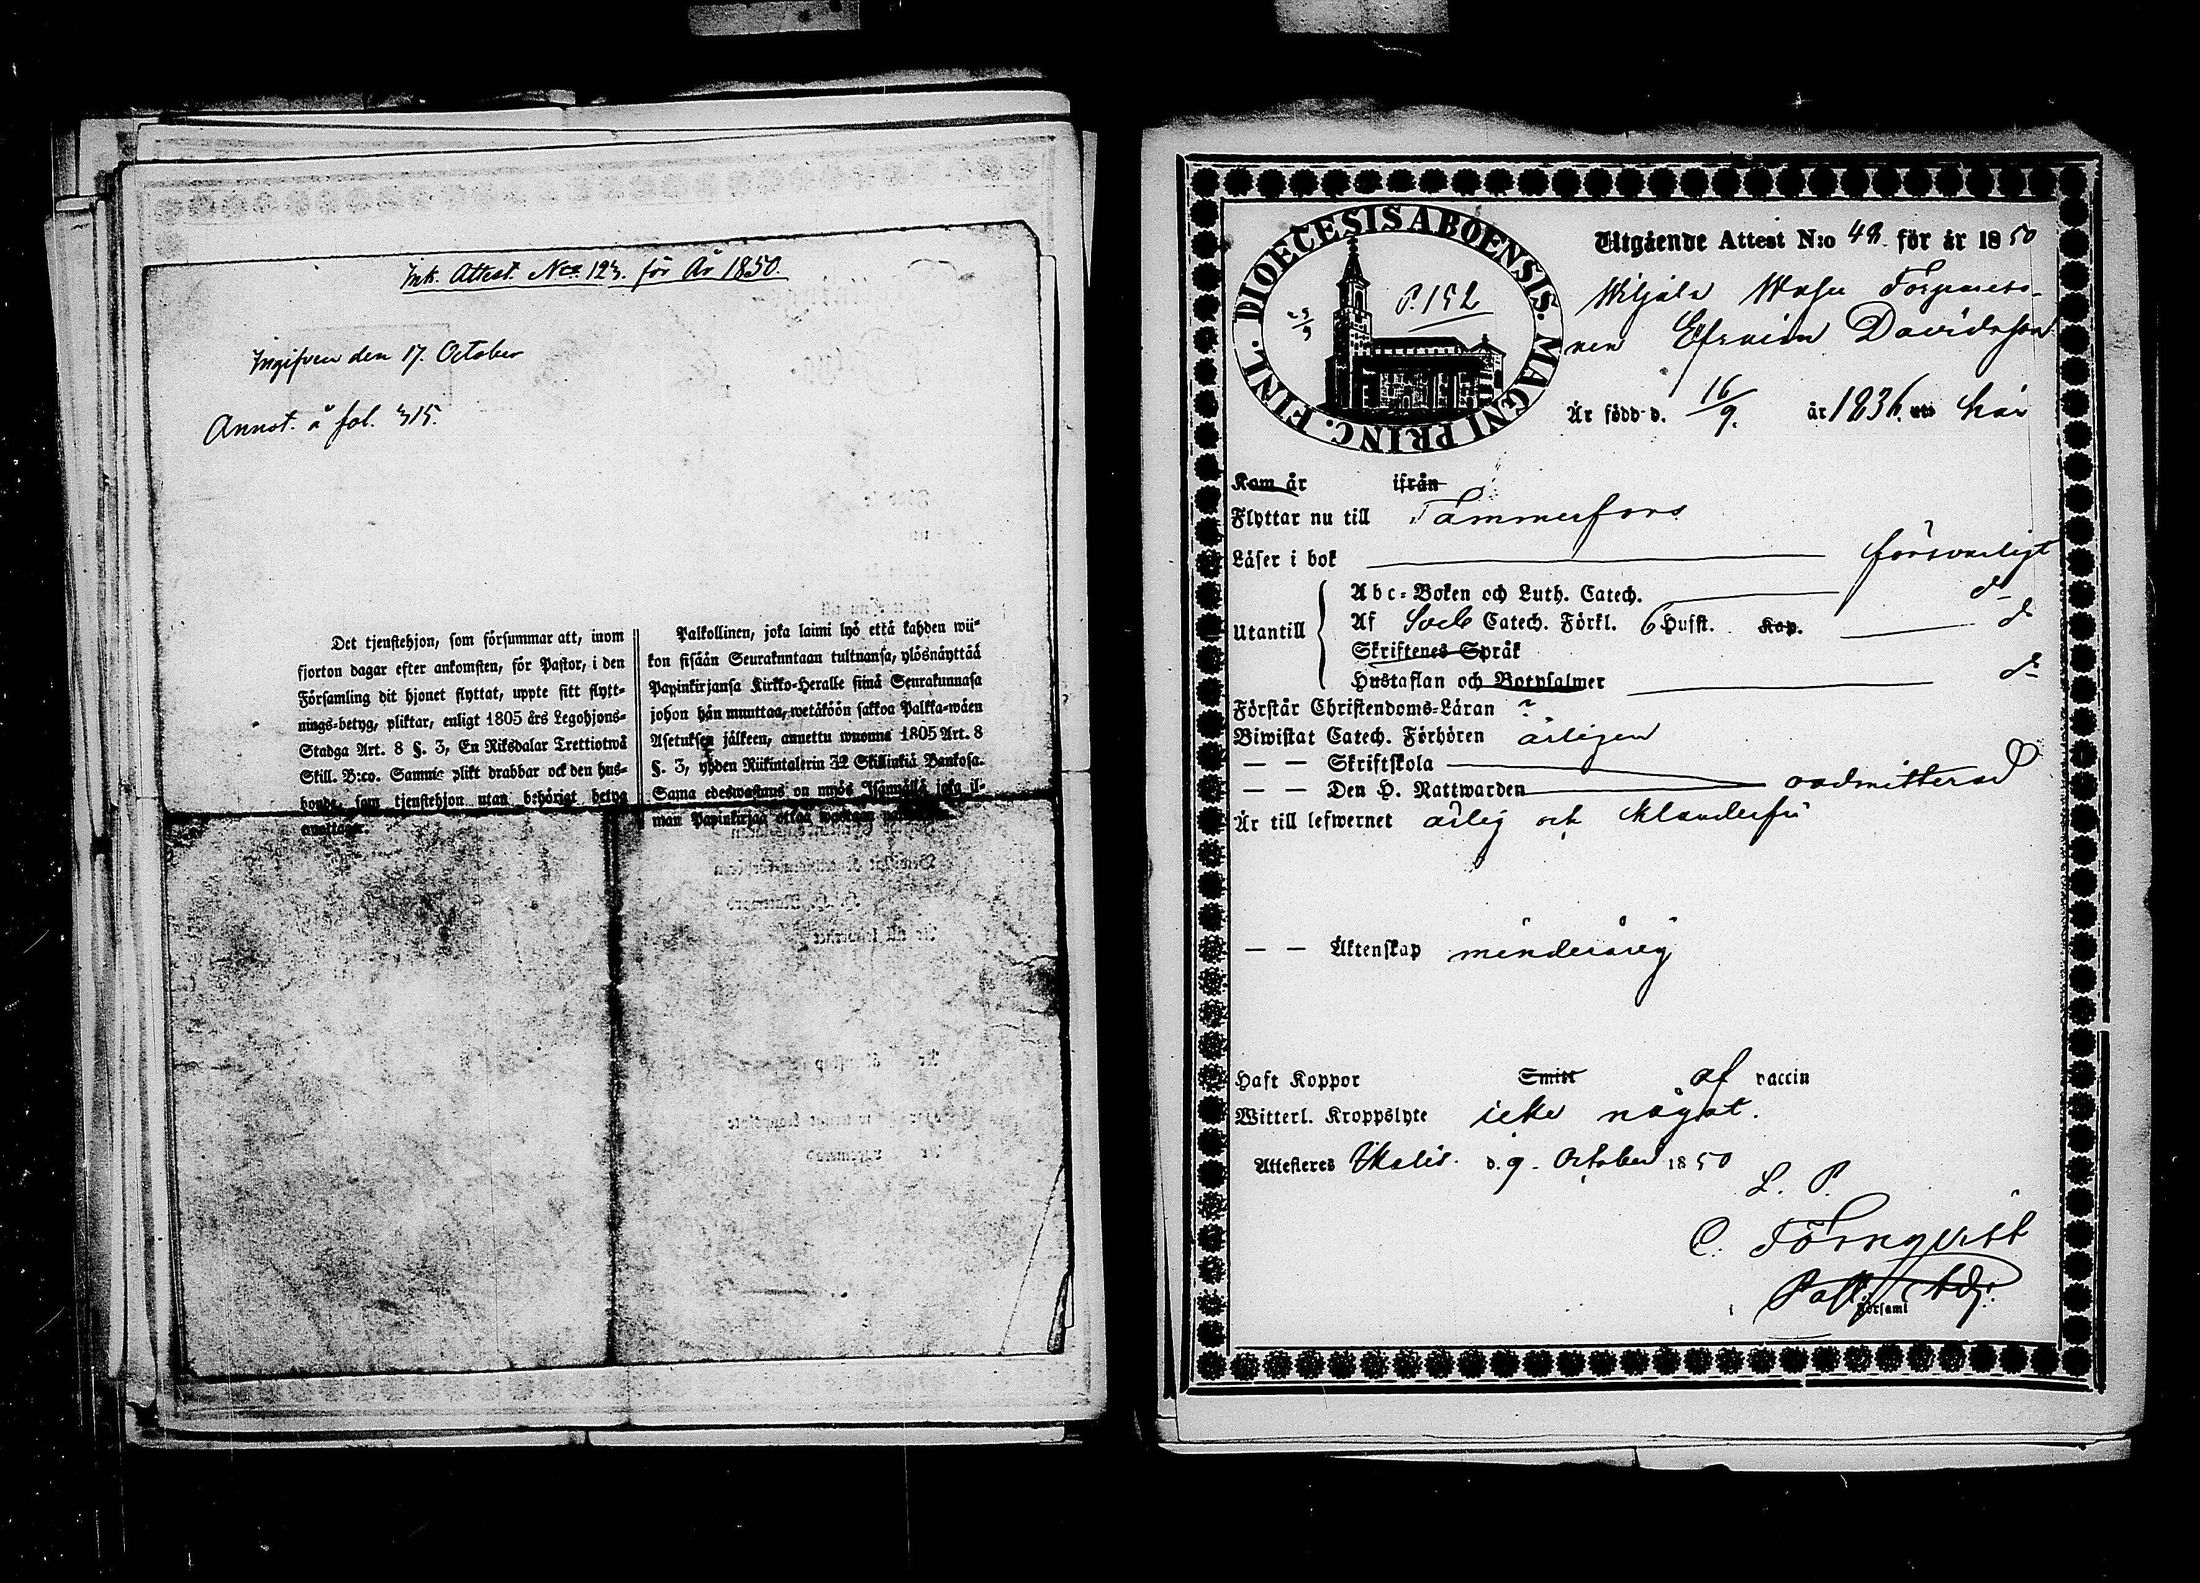 Ink. Attest. N:o 123. för År 1850.
Ingifven den 17. October
Annot. å fol. 315.
Det tjenstehjon, som försummar att, inom
fjorton dagar efter ankomsten, för Pastor, i den
Församling dit hjonet flyttat, uppte sitt flytt-
nings-betyg, pliktar, enligt 1805 års Legohjons-
Stadga Art. 8 §. 3, En Riksdalar Trettiotwå
Skill. B:co. Samma plikt drabbar ock den hus-
bonde, som tjenstehjon utan behörigt betyg
emottager.
Palkollinen, joka laimi lyö että kahden wii-
kon sisään Seurakuntaan tultuansa, ylösnäyttää
Papinkirjansa Kirkko-Heralle siinä Seurakunnasa
johon hän muuttaa, wetäköön sakkoa Palkka-wäen
Asetuksen jälkeen, annettu wuonna 1805 Art. 8
§. 3, yhden Riikintalerin 32 Skillinkiä Bankosa.
Sama edeswastaus on myös Isännällä joka il-
man Papinkirjaa ottaa
DIOECESIS ABOENSIS. MAGNI PRINC. FINL.
23/9
P. 152
Utgående Attest N:o 48 för år 1850
Torpareso-
nen Efraim Davidsson
Är född d. 16/9. år 1836. uti här
Kom år ifrån
Flyttar nu till Tammerfors
Läser i bok försvarligt
Utantill
Abc-Boken och Luth. Catech. d:o
Af Sveb Catech. Förkl. 6 Hufst. Kap. d:o
Skriftenes Språk
Hustaflan och Botpsalmer d:o
Förstår Christendoms-Läran ?
Biwistat Catech. Förhören årligen
— — Skriftskola
— — Den H. Nattwarden oadmitterad
Är till lefwernet ärlig och klanderfri
— — Äktenskap minderårig
Haft Koppor Smitt af vaccin
Witterl. Kroppslyte icke något.
Attesteres Ikalis. d. 9. October 1850
L. P.
C. Törnqvist
Past. Adj.
i Församl